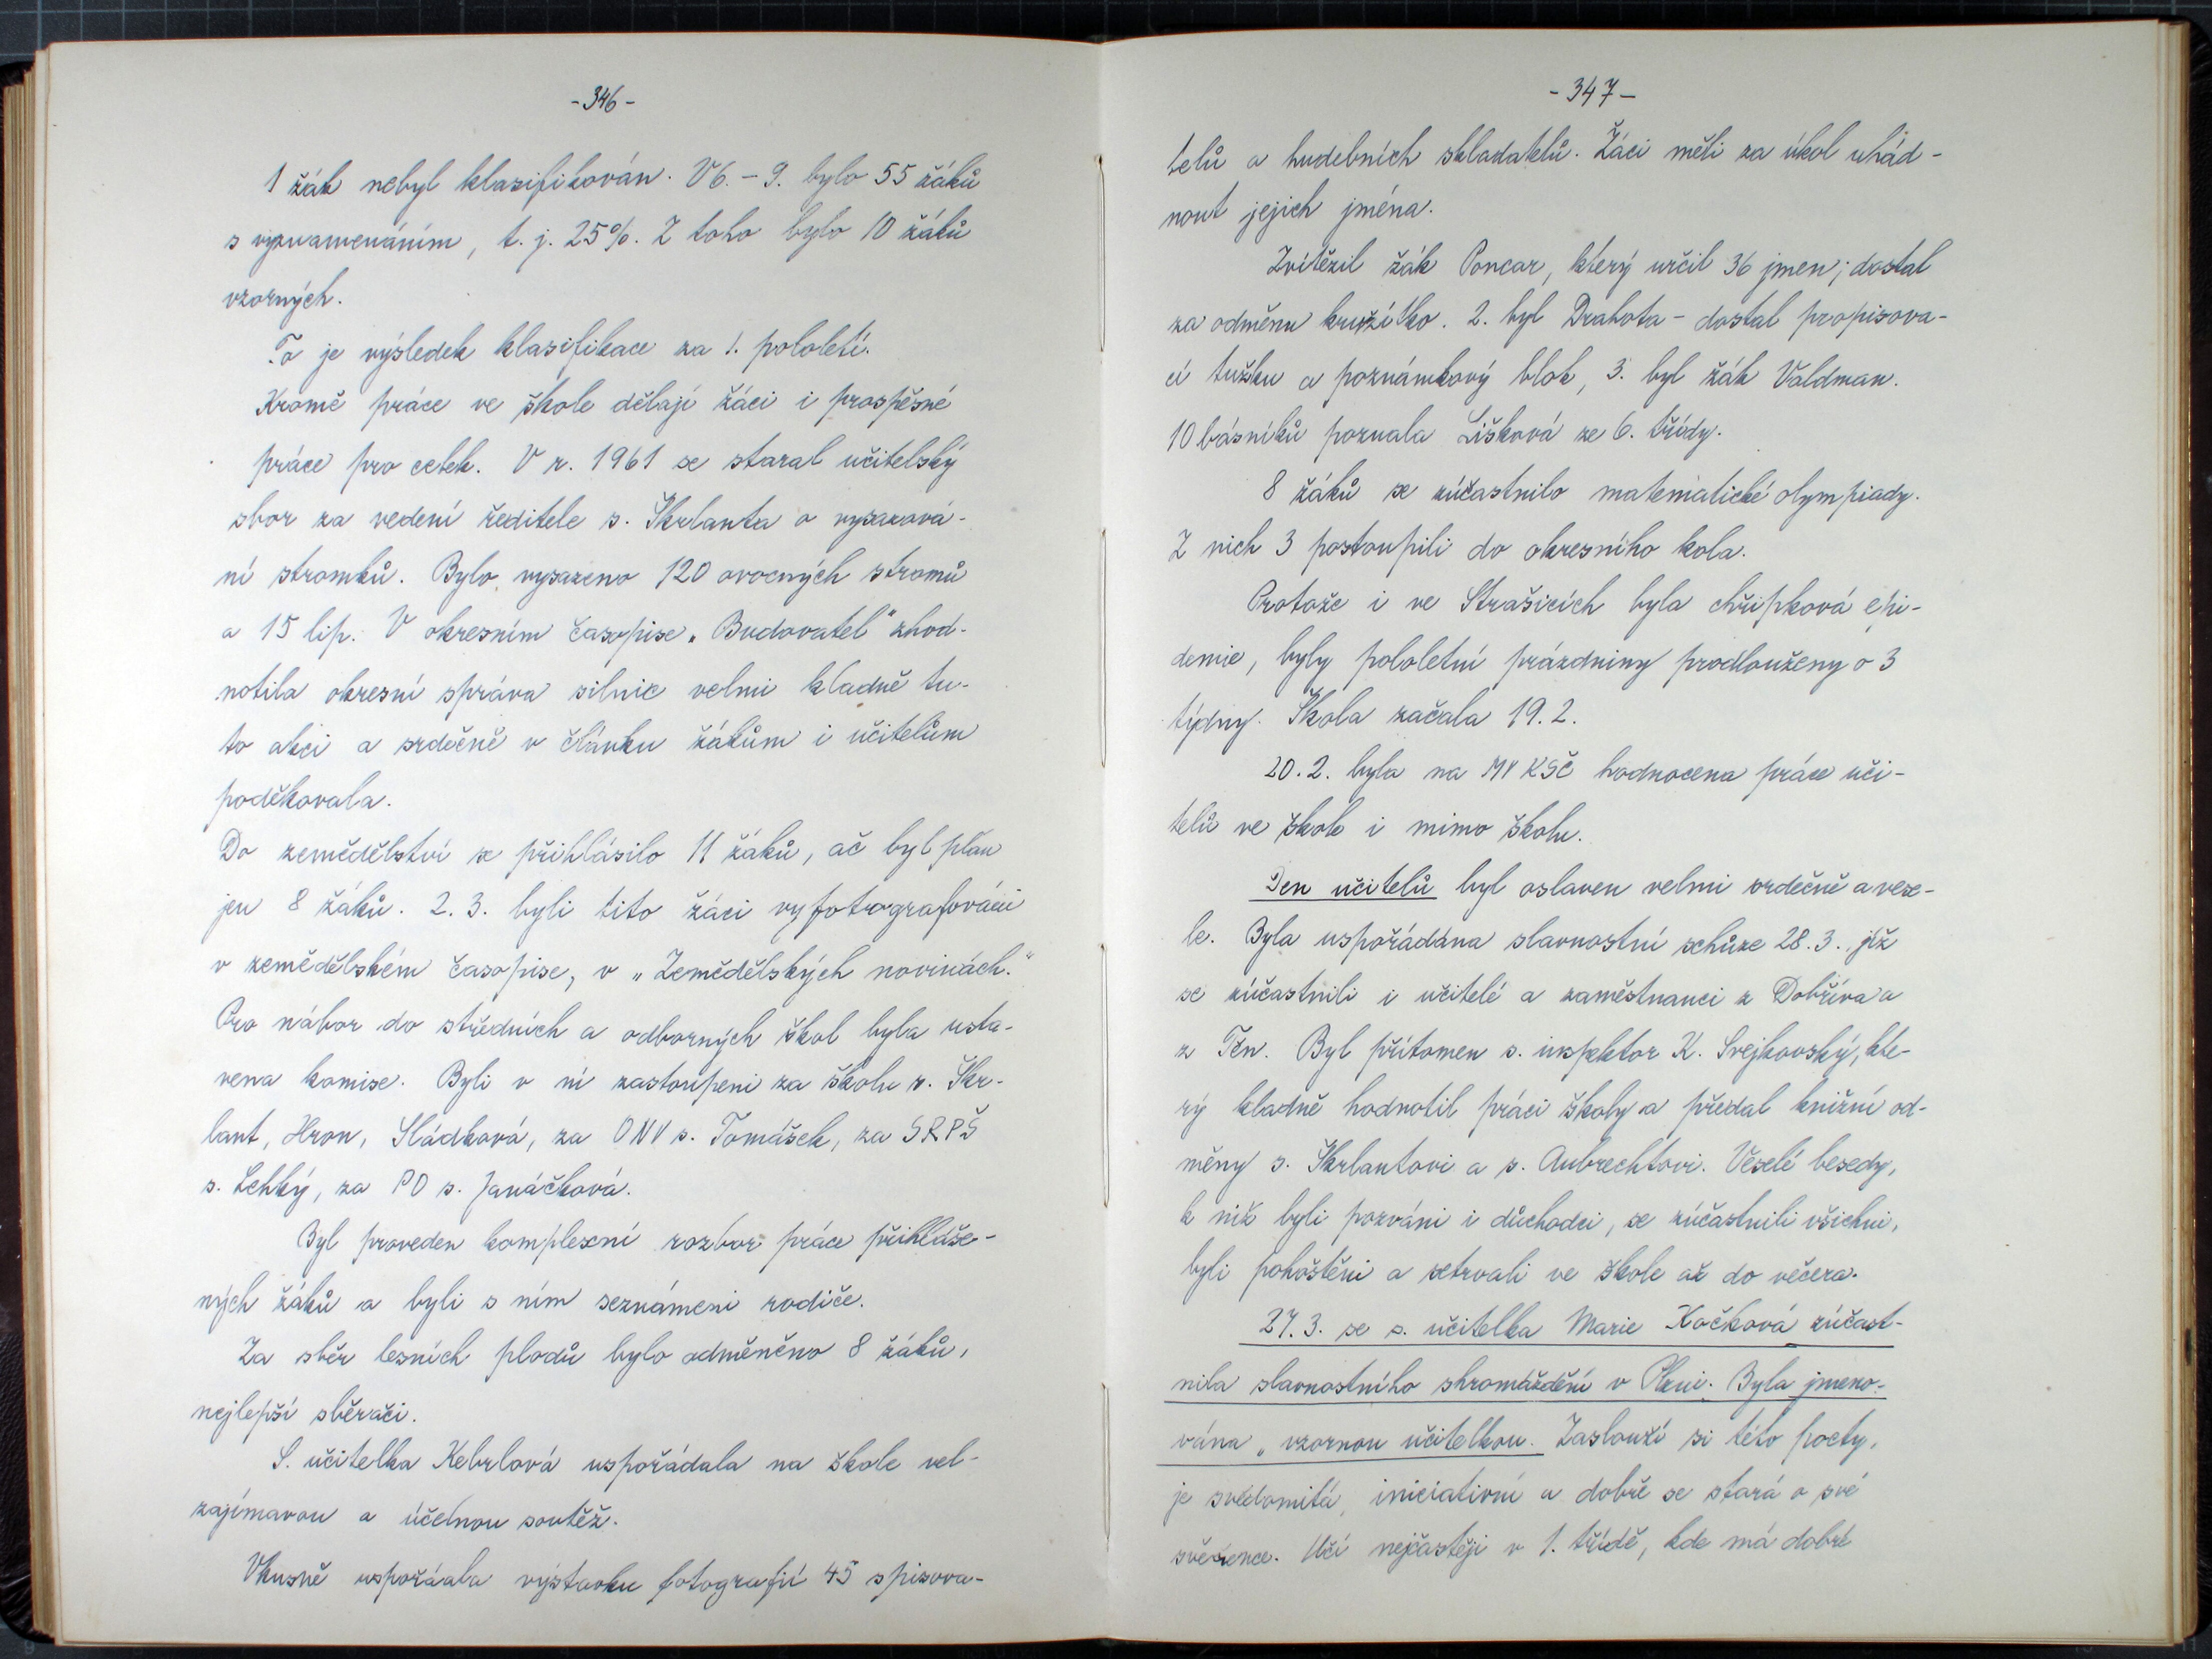 -346-
1 žák nebyl klasifikován. V 6. – 9. bylo 55 žáků
s vyznamenáním, t. j. 25%. Z toho bylo 10 žáků
vzorných.
To je výsledek klasifikace za 1. pololetí.
Kromě práce ve škole dělají žáci i prospěšné
práce pro celek. V r. 1961 se staral učitelský
sbor za vedení ředitele s. Škrlanta o vysazová-
ní stromků. Bylo vysazeno 120 ovocných stromů
a 15 lip. V okresním časopise „Budovatel" zhod-
notila okresní správa silnic velmi kladně tu-
to akci a srdečně v článku žákům i učitelům
poděkovala.
Do zemědělství se přihlásilo 11 žáků, ač byl plán
jen 8 žáků. 2. 3. byli tito žáci vyfotografováni
v zemědělském časopise, v „Zemědělských novinách."
Pro nábor do středních a odborných škol byla usta-
vena komise. Byli v ní zastoupeni za školu s. Škr-
lant, Hron, Sládková, za ONV s. Tomášek, za SRPŠ
s. Lehký, za PO s. Janáčková.
Byl proveden komplexní rozbor práce přihláše-
ných žáků a byli s ním seznámeni rodiče.
Za sběr lesních plodů bylo odměněno 8 žáků,
nejlepší sběrači.
S. učitelka Kebrlová uspořádala na škole vel-
zajímavou a účelnou soutěž.
Vkusně uspořáala výstavku fotografií 45 spisova-
-347-
telů a hudebních skladatelů. Žáci měli za úkol uhád-
nout jejich jména.
Zvítězil žák Poncar, který určil 36 jmen; dostal
za odměnu kružítko. 2. byl Drahota – dostal propisova-
cí tužku a poznámkový blok, 3. byl žák Valdman.
10 básníků poznala Lišková ze 6. třídy.
8 žáků se zúčastnilo matematické olympiady.
Z nich 3 postoupili do okresního kola.
Protože i ve Strašicích byla chřipková epi-
demie, byly pololetní prázdniny prodlouženy o 3
týdny. Škola začala 19. 2.
20. 2. byla na MV KSČ hodnocena práce uči-
telů ve škole i mimo školu.
Den učitelů byl oslaven velmi srdečně a vese-
le. Byla uspořádána slavnostní schůze 28. 3., jíž
se zúčastnili i učitelé a zaměstnanci z Dobříva a
z Těn. Byl přítomen s. inspektor K. Svejkovský, kte-
rý kladně hodnotil práci školy a předal knižní od-
měny s. Škrlantovi a s. Aubrechtovi. Veselé besedy,
k níž byli pozváni i důchodci, se zúčastnili všichni,
byli pohoštěni a setrvali ve škole až do večera.
27. 3. se s. učitelka Marie Kočková zúčast-
nila slavnostního shromáždění v Plzni. Byla jmeno-
vána „vzornou učitelkou. Zaslouží si této pocty,
je svědomitá, iniciativní a dobře se stará o své
svěřence. Učí nejčastěji v 1. třídě, kde má dobré